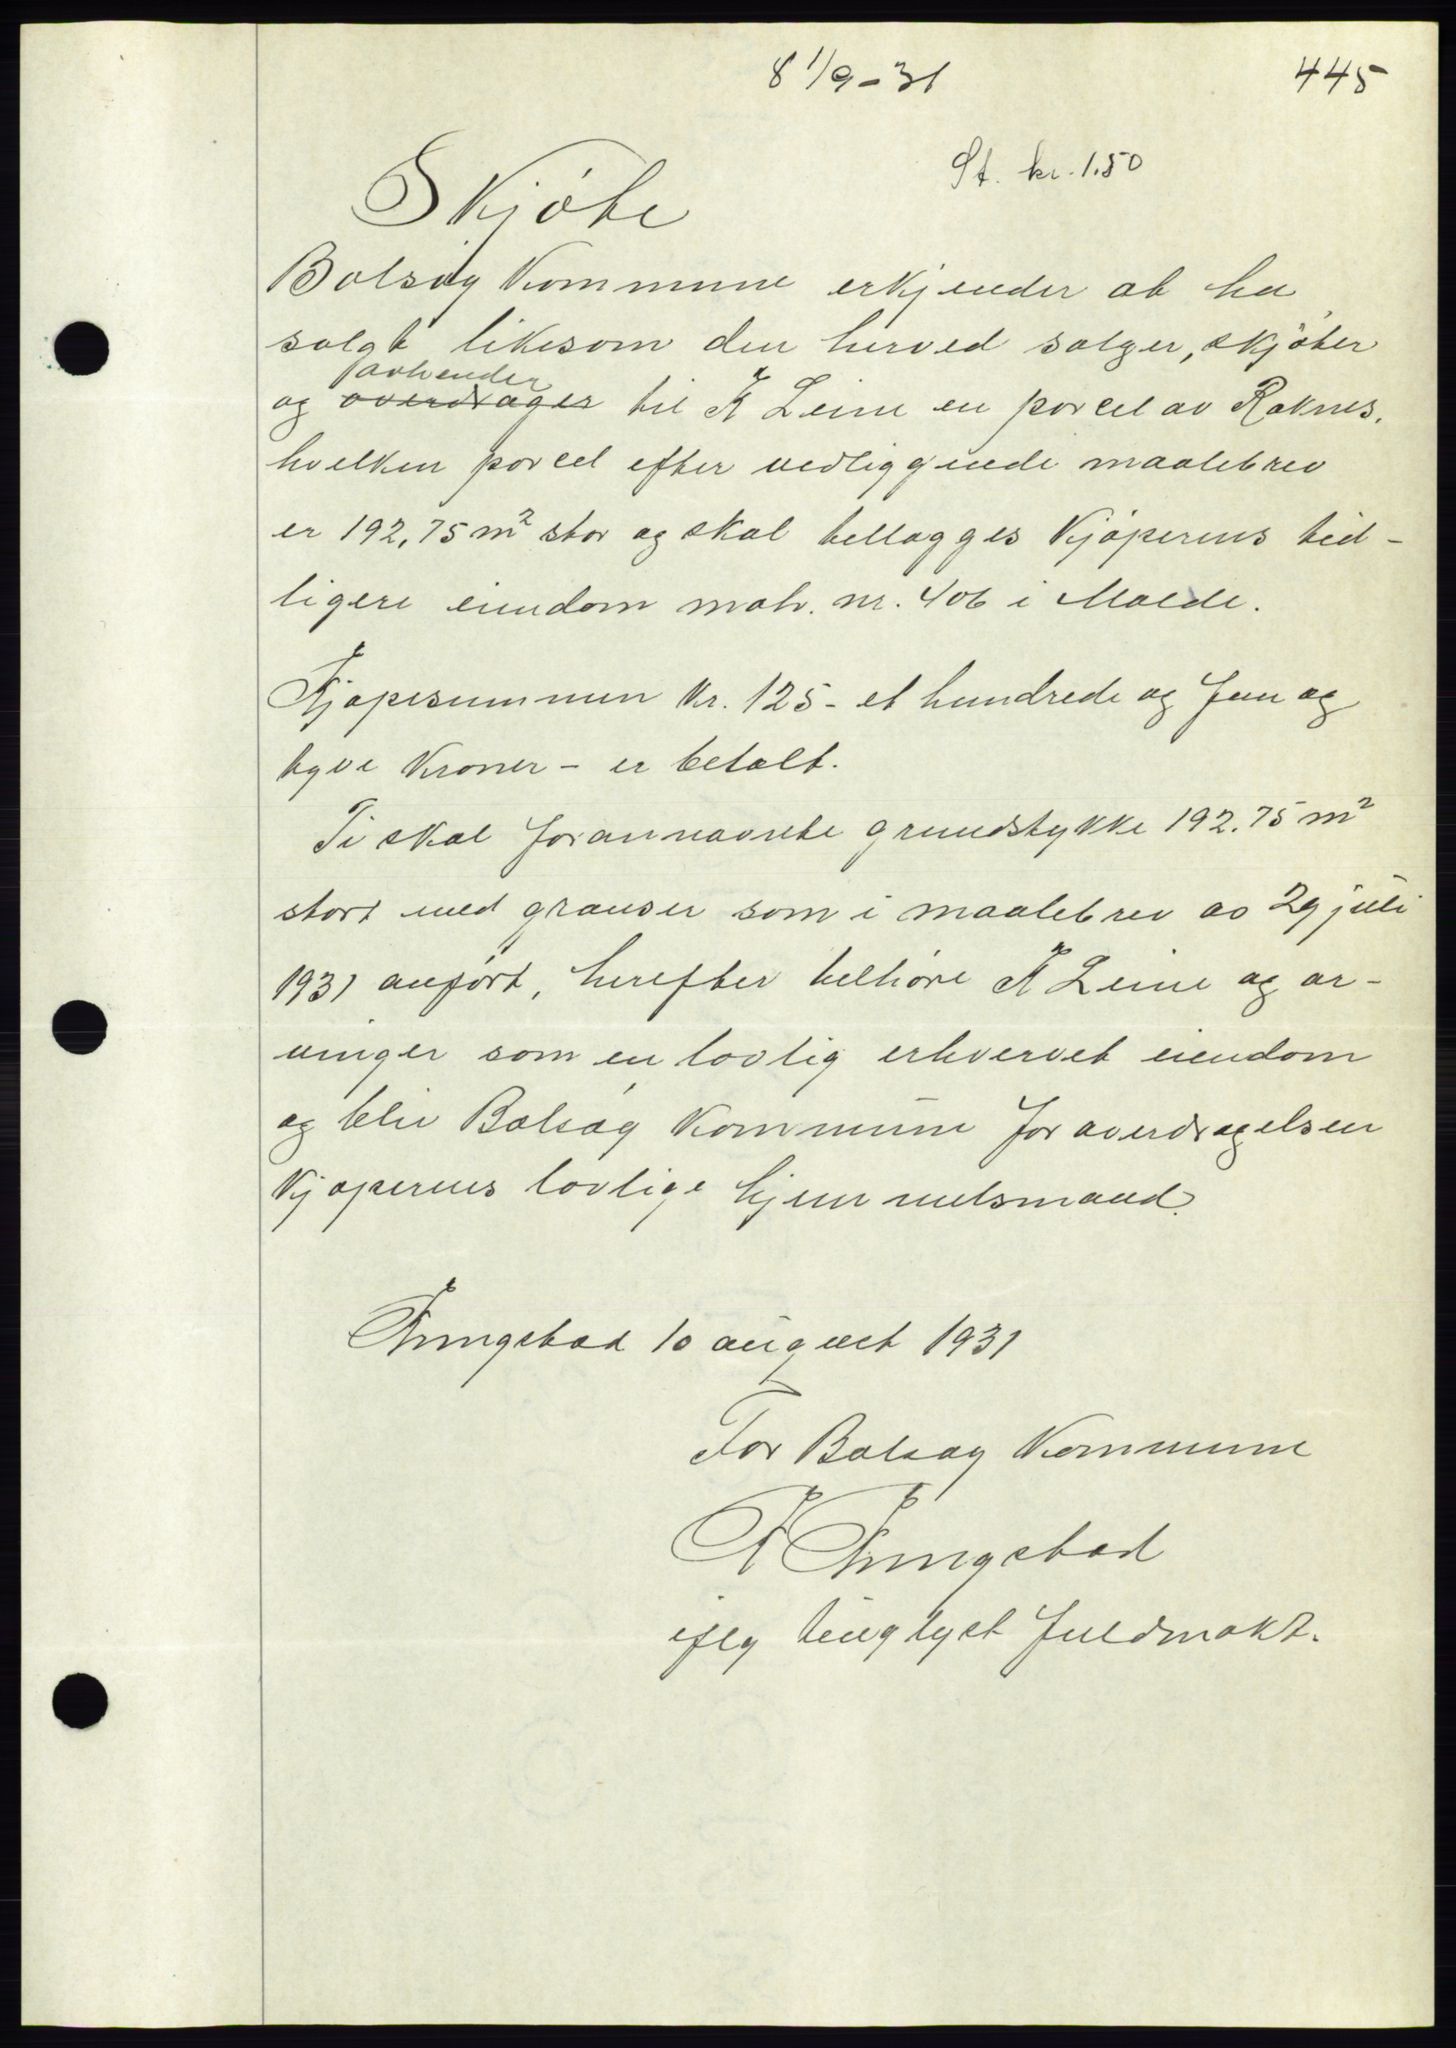 8 1/9-31
445
St. kr. 1.50
Skjøte
Bolsøy kommune erkjender at ha
solgt likesom den herved sælger, skjøter
avhender
og overdrager til K Leine en parcel av Raknes,
hvilken parcel efter vedliggende maalebrev
er 192,75 m² stor og skal tillægges kjøperens tid-
ligere eiendom matr. nr. 406 i Molde.
Kjøpesummen kr. 125 - et hundrede og fem og
tyve kroner - er betalt.
Ti skal forannævnte grundstykke 192.75 m²
stort med grænser som i maalebrev av 29 juli
1931 anført, herefter tilhøre K Leine og ar-
vinger som en lovlig erhvervet eiendom
og blir Bolsøy kommune for overdragelsen
kjøperens lovlige hjemmelsmand.
Kringstad 10 august 1931
For Bolsøy kommune
K Kringstad
iflg tinglyst fuldmakt.